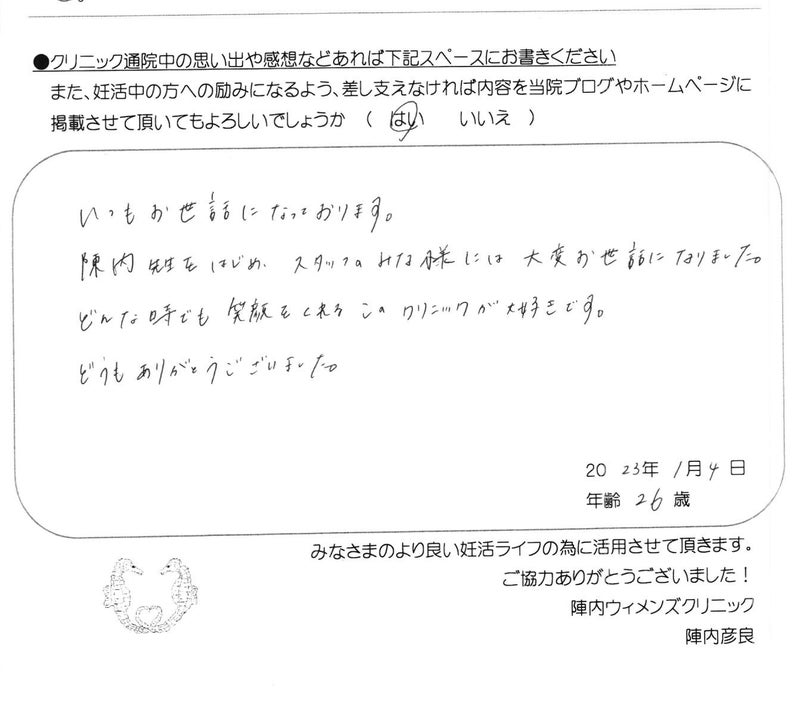 ●クリニック通院中の思い出や感想などあれば下記スペースにお書きください
また、妊活中の方への励みになるよう、差し支えなければ内容を当院ブログやホームページに
掲載させて頂いてもよろしいでしょうか ( はい いいえ )
いつもお世話になっております。
陳内先生をはじめ、スタッフのみな様には大変お世話になりました。
どんな時でも笑顔をくれるこのクリニックが大好きです。
どうもありがとうございました。
2023年1月4日
年齢 26 歳
みなさまのより良い妊活ライフの為に活用させて頂きます。
ご協力ありがとうございました！
陣内ウィメンズクリニック
陣内彦良